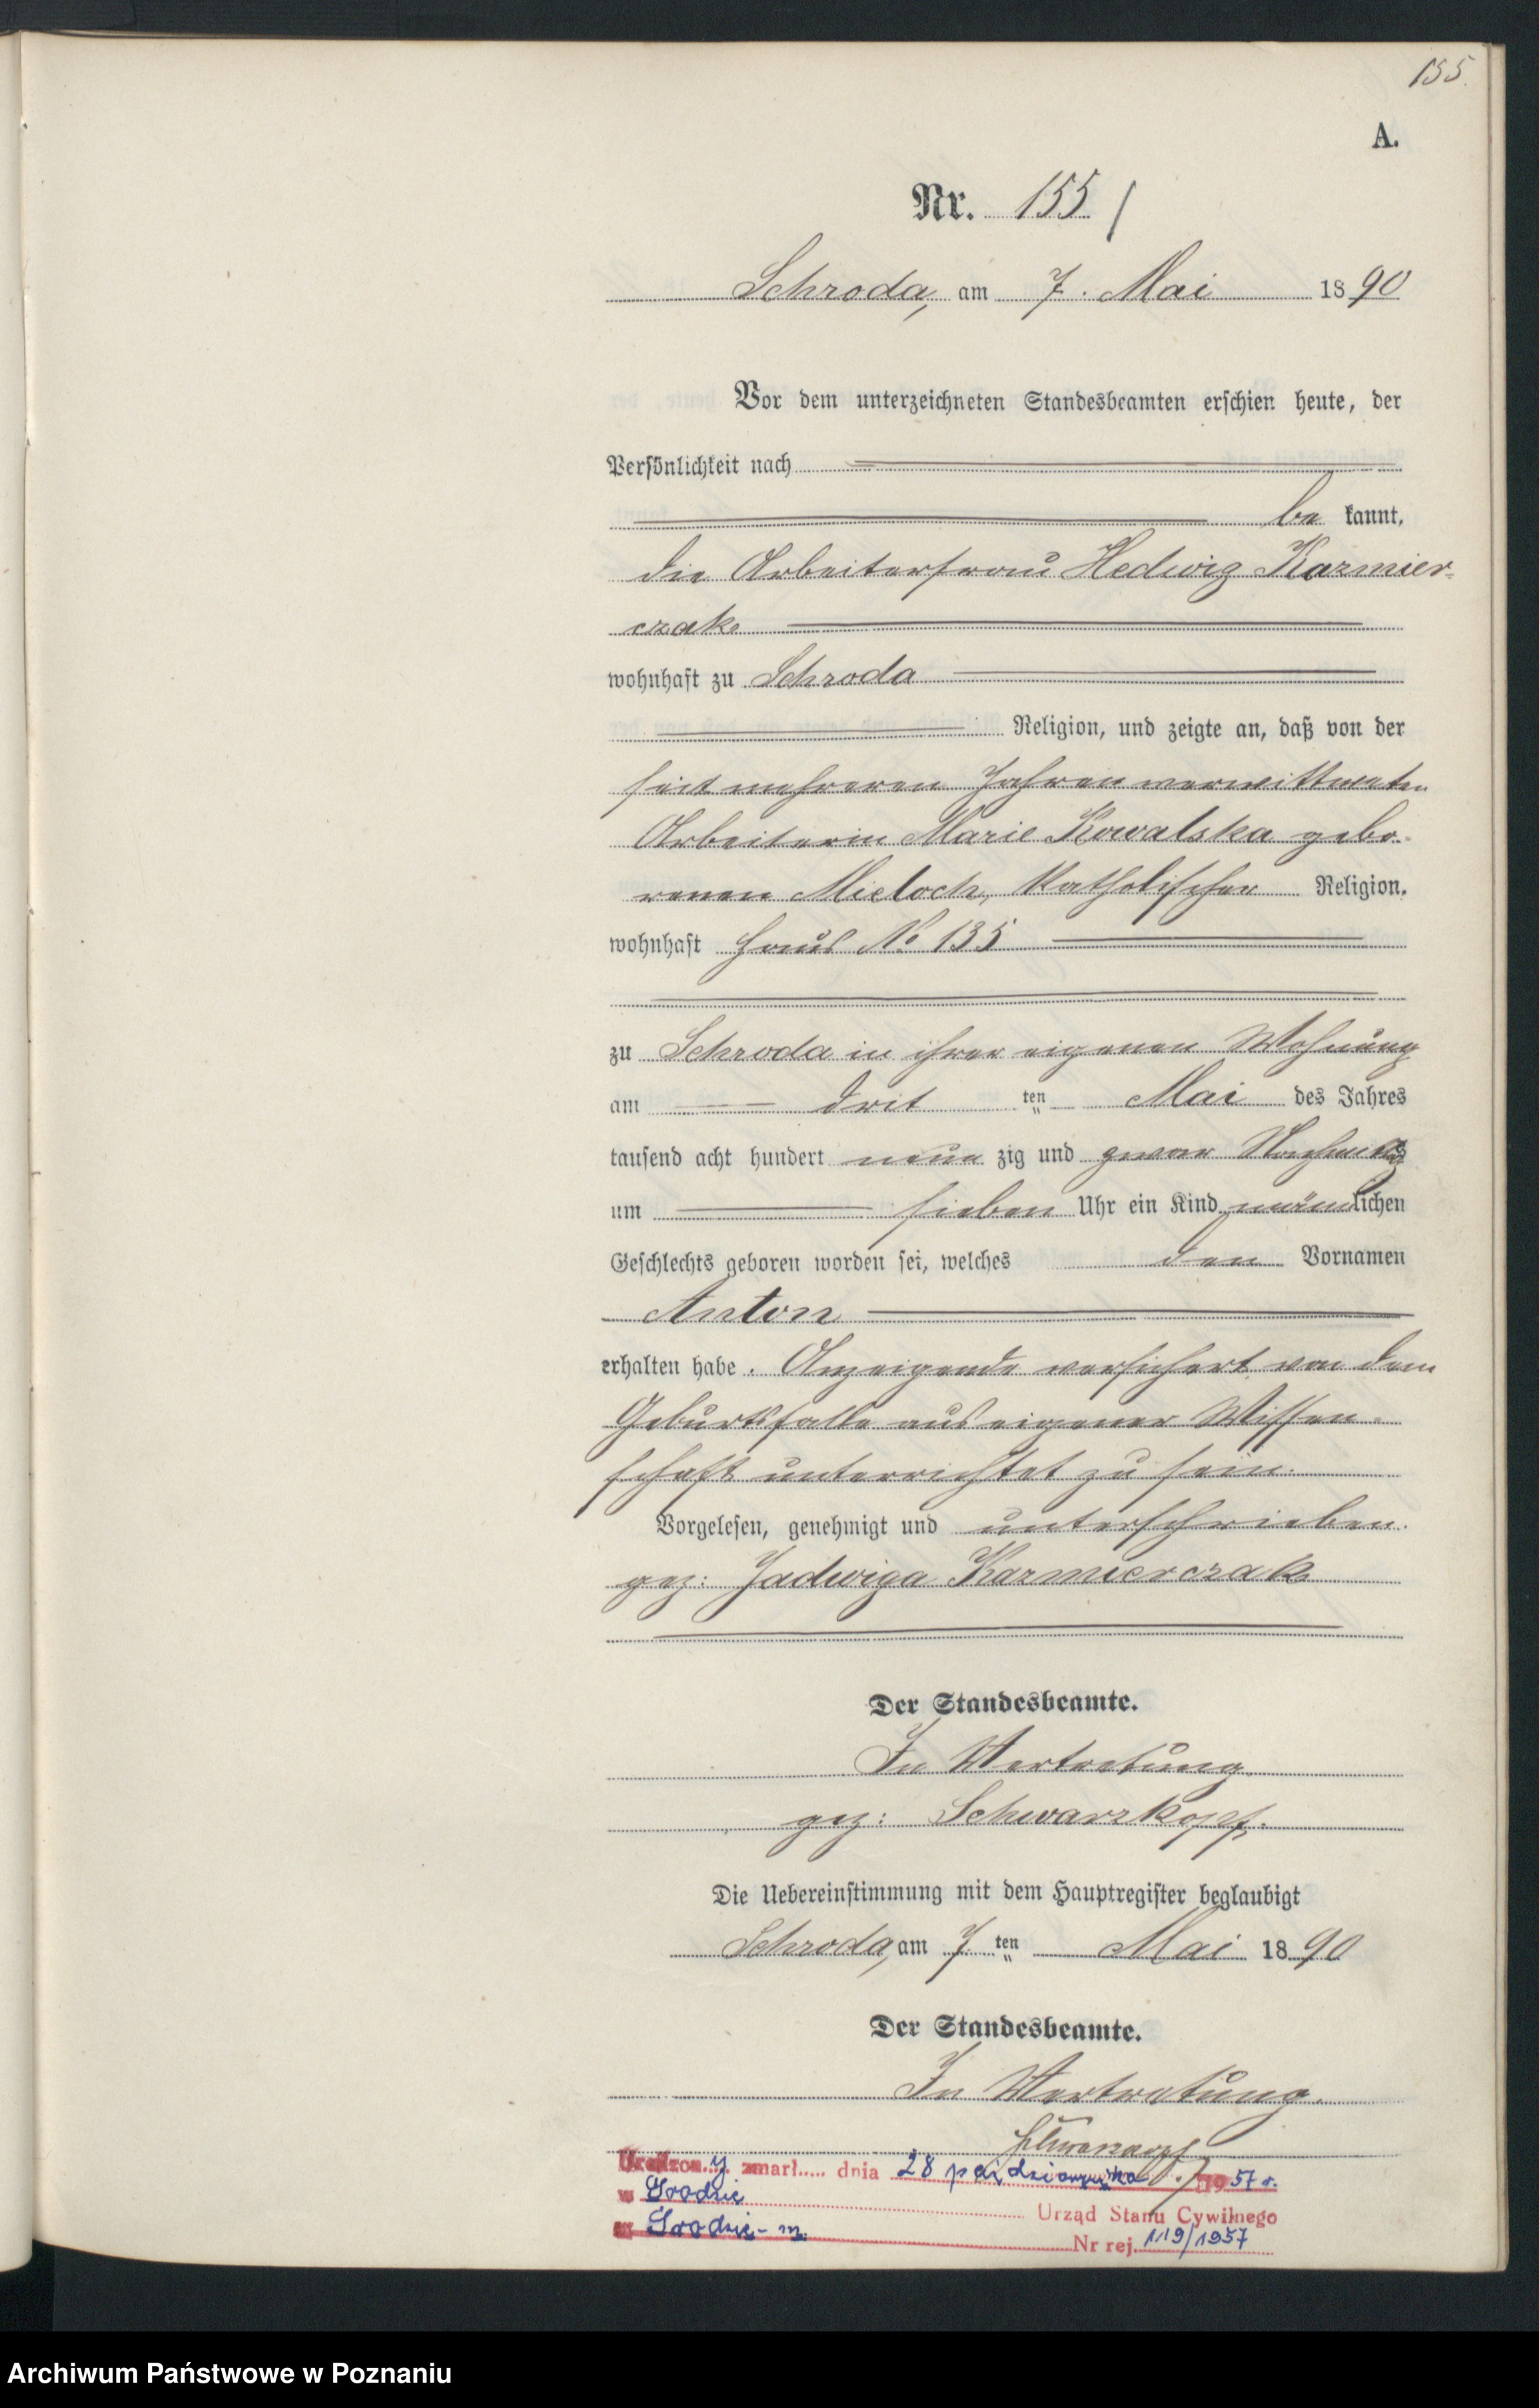 155.
A.
Nr. 155
Schroda, am 7. Mai 1890
Vor dem unterzeichneten Standesbeamten erschien heute, der
Persönlichkeit nach
be kannt,
die Arbeiterfrau Hedwig Kazmier-
czak
wohnhaft zu Schroda
Religion, und zeigte an, daß von der
seit mehreren Jahren verwittweten
Arbeiterin Marie Kowalska gebo-
renen Mieloch, katholischer Religion,
wohnhaft Haus No 135
zu Schroda in ihrer eigenen Wohnung
am drit ten Mai des Jahres
tausend acht hundert neun zig und zwar Nachmittags
um sieben Uhr ein Kind männlichen
Geschlechts geboren worden sei, welches den Vornamen
Anton
erhalten habe. Anzeigende versichert von dem
Geburtsfalle aus eigener Wissen-
schaft unterrichtet zu sein.
Vorgelesen, genehmigt und unterschrieben.
gez: Jadwiga Kazmierczak
Der Standesbeamte.
In Vertretung
gez: Schwarzkopf.
Die Uebereinstimmung mit dem Hauptregister beglaubigt
Schroda, am 7 ten Mai 1890
Der Standesbeamte.
In Vertretung.
zmarł..... dnia 28 października 1957 r.
w Środzie
Urząd Stanu Cywilnego
w Środzie - m.
Nr rej. 119/1957
Archiwum Państwowe w Poznaniu